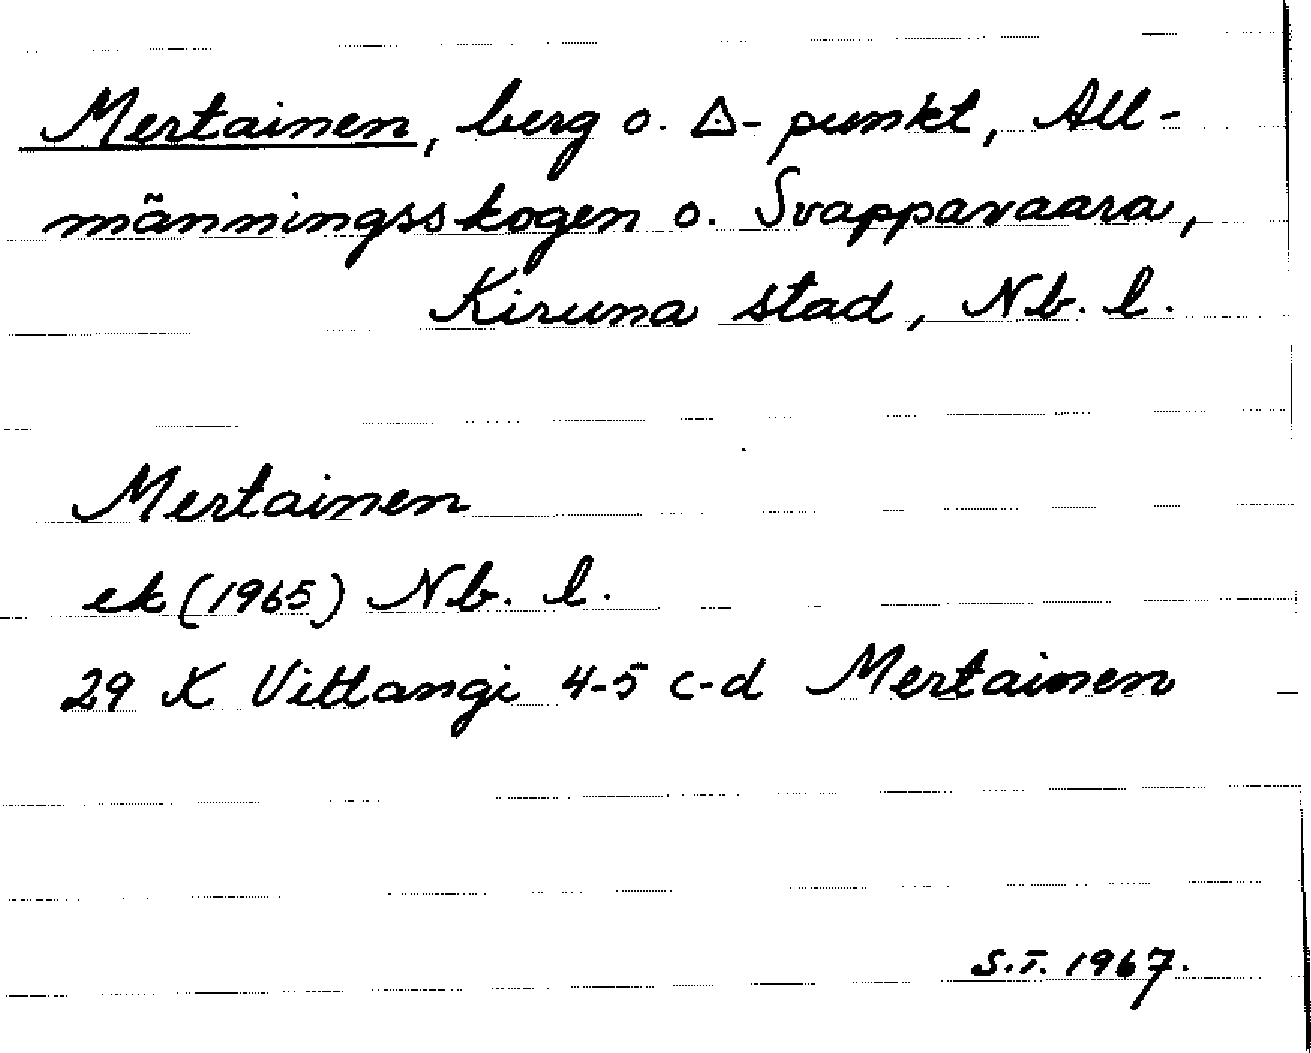 Mertainen, berg o. △-punkt, All-
männingsskogen o. Svappavaara,
Kiruna stad, Nb. l.
Mertainen
ek (1965) Nb. l.
29 K Vittangi 4-5 c-d Mertainen
S.T. 1967.